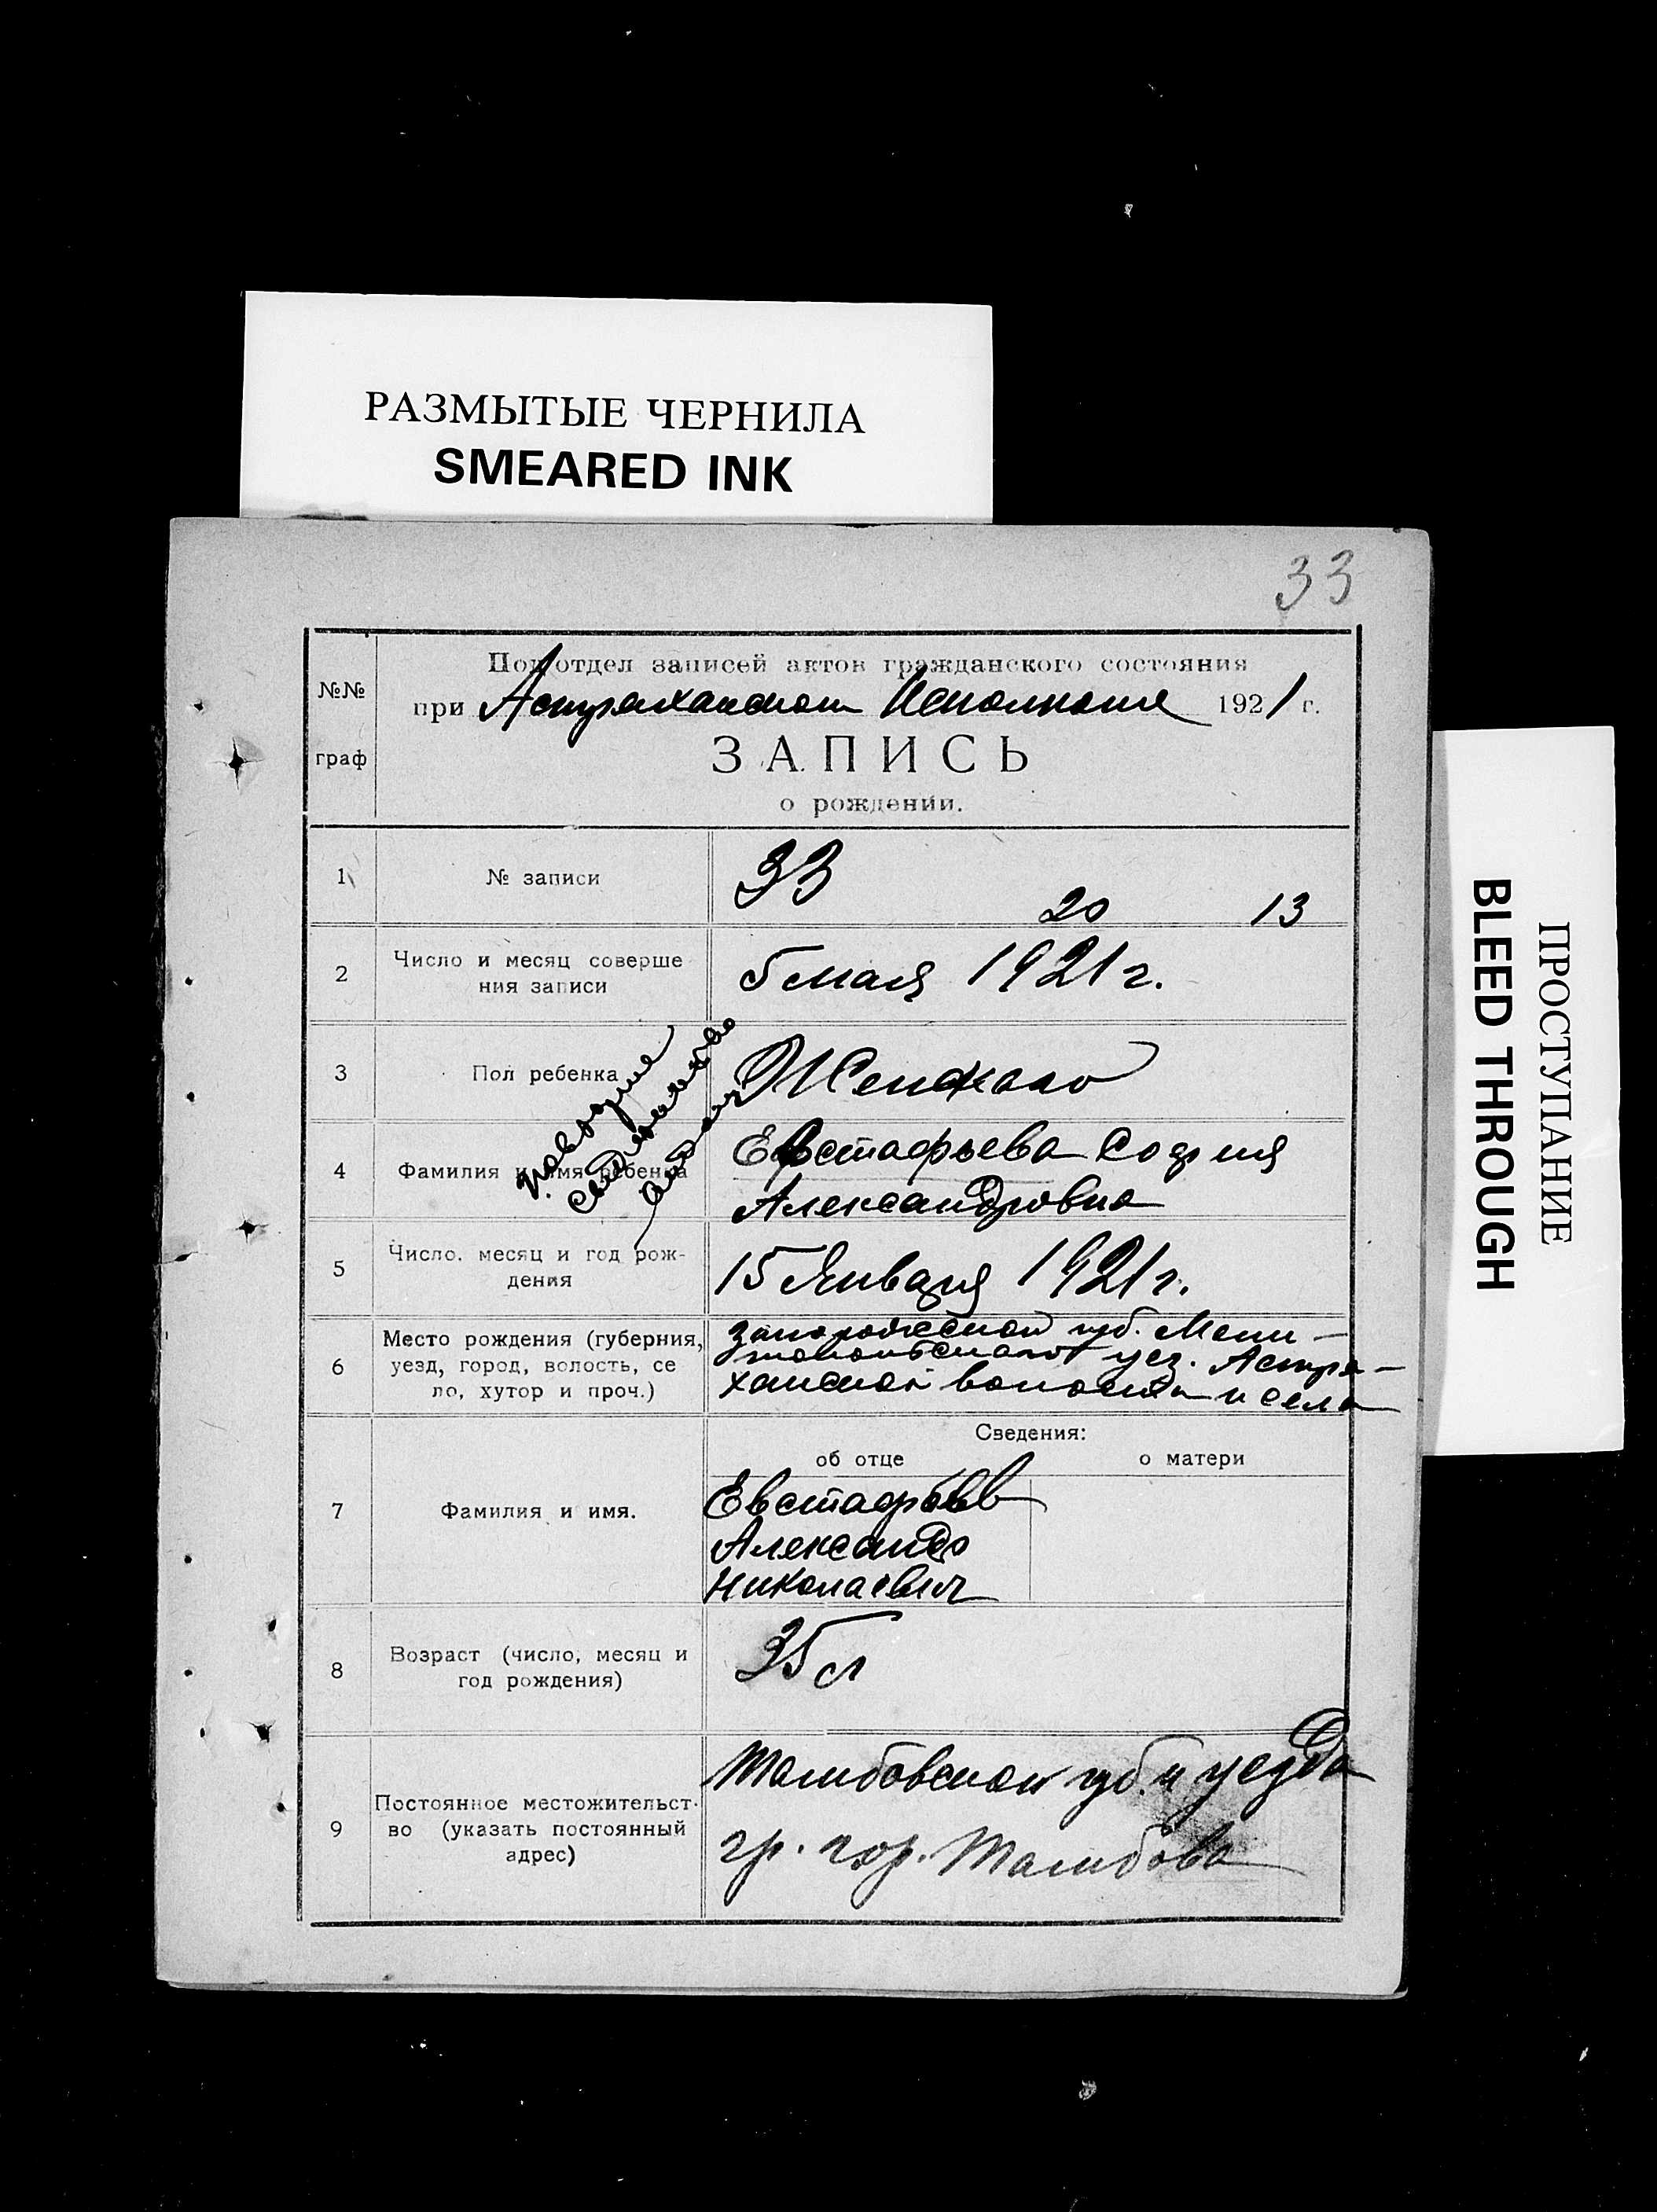 РАЗМЫТЫЕ ЧЕРНИЛА
SMEARED INK
ПРОСТУПАНИЕ
BLEED THROUGH
33
№№
граф
Подотдел записей актов гражданского состояния
при Астраханском Исполкоме 1921 г.
ЗАПИСЬ
о рождении.
1
№ записи
33
20 13
2
Число и месяц соверше
ния записи
5 мая 1921 г.
3
Пол ребенка
Женскаго
4
Фамилия и имя ребенка
Евстафьева София
Александровна
5
Число. месяц и год рож-
дения
15 Января 1921 г.
6
Место рождения (губерния,
уезд, город, волость, се
ло, хутор и проч.)
Запорожской губ. Мели-
топольского уез. Астра-
ханской волости и села
Сведения:
об отце
о матери
7
Фамилия и имя.
Евстафьев
Александр
Николаевич
8
Возраст (число, месяц и
год рождения)
35 л
9
Постоянное местожительст-
во (указать постоянный
адрес)
Тамбовской губ. и уезда
гр. гор. Тамбова